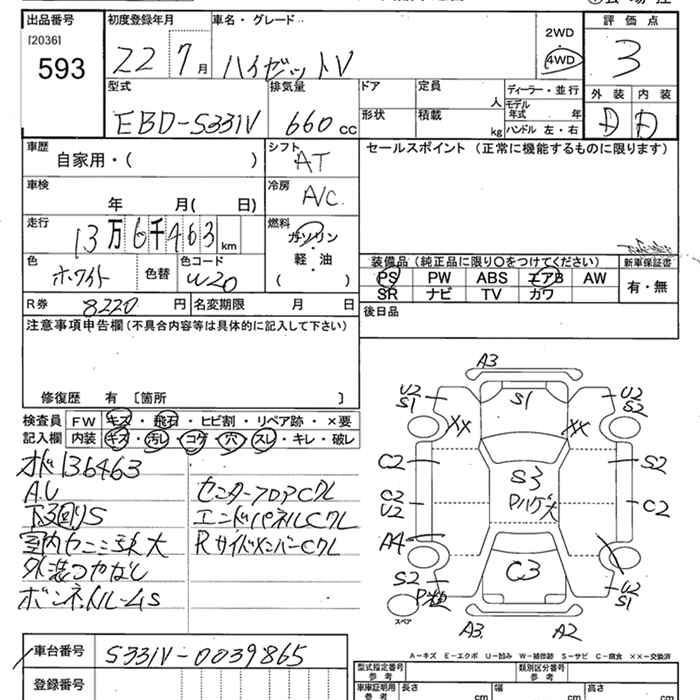 出品番号
[2036]
593
初度登録年月
22 7月
車名・グレード
ハイゼットV
2WD
4WD
評価点
3
外装 内装
D D
型式
EBD-S331V
排気量
660cc
ドア
形状
定員
人
積載
kg
ディーラー・並行
モデル年式 年
ハンドル 左・右
車歴
自家用・( )
シフト
AT
セールスポイント (正常に機能するものに限ります)
車検
年 月( 日)
冷房
A/C
走行
13万6千463km
燃料
ガソリン
・
軽油
( )
色
ホワイト
色替
色コード
W20
装備品(純正品に限り〇をつけてください)
PS PW ABS エアB AW
SR ナビ TV カワ
新車保証書
有・無
R券
8220円
名変期限 月 日
後日品
注意事項申告欄(不具合内容等は具体的に記入して下さい)
修復歴 有 〔箇所 〕
検査員記入欄
FW キズ・飛石・ヒビ割・リペア跡・×要
内装 キズ・汚レ・コゲ・穴・スレ・キレ・破レ
136463
A.U
下回りS
外装つやなし
ボンネットルームS
センターフロアCクレ
エンドパネルCクレ
RサイドメンバーCクレ
A3
U2
S1
S1
U2
S2
XX
XX
C2
S2
S3
C2
U2
C2
A4
C3
S2
U2
S1
スペア
A3
A2
A-キズ E-エクボ U-凹み W-補修跡 S-サビ C-腐食 XX-交換済
車台番号
S331V-0039865
登録番号
型式指定番号
参考
類別区分番号
参考
車庫証明用
参考
長さ cm
幅 cm
高さ cm